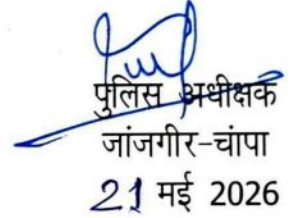 पुलिस अधीक्षक
जांजगीर-चांपा
21 मई 2026